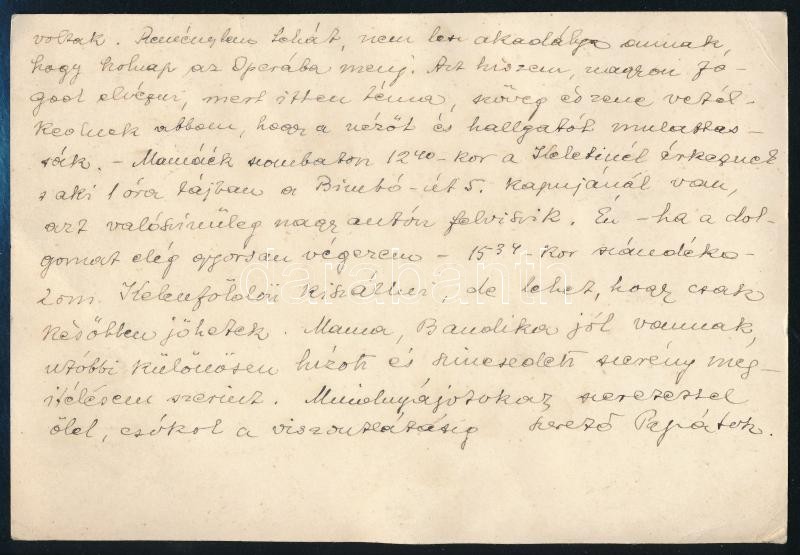 voltak. Reménylem tehát, nem lesz akadálya annak,
hogy holnap az Operába menj. Azt hiszem, nagyon fo-
god élvezni, mert itten téma, szöveg és zene vetél-
kednek abban, hogy a nézőt és hallgatót mulattas-
sák. – Mamáék szombaton 12⁴⁰-kor a Keletinél érkeznek
s aki 1 óra tájban a Bimbó-út 5. kapujánál van,
azt valószinüleg nagy autón felviszik. Én – ha a dol-
gomat elég gyorsan végezem – 15³⁴-kor szándéko-
zom Kelenföldön kiszállni, de lehet, hogy csak
későbben jöhetek. Mama, Bandika jól vannak,
utóbbi különösen hízott és szinesedett szerény meg-
itélésem szerint. Mindnyájotokat szeretettel
ölel, csókol a viszontlátásig szerető Papátok.
darabanth